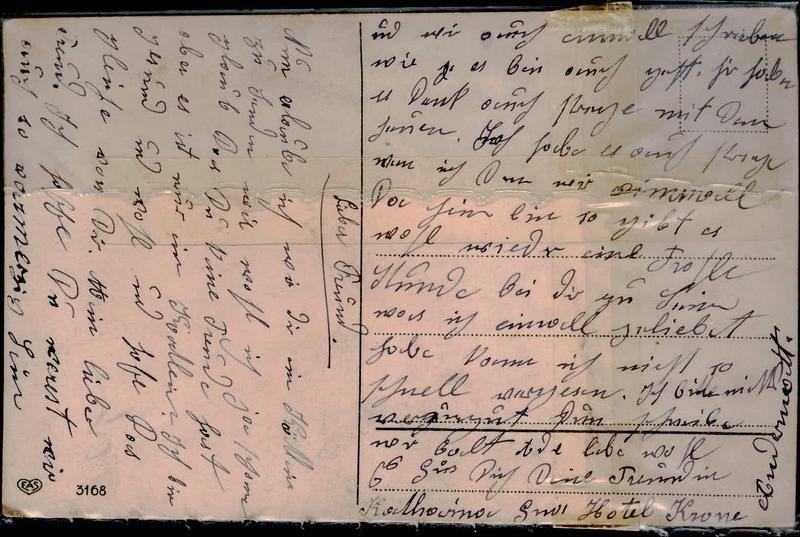 Lieber Freund.
Nun erlaube ich mir dir im Stillen
zu senden weil wohl ich ja schon
glaub das Du keine Freude hast
aber es ist nur ein Ich bin
gesund und wohl und hoffe das
gleiche von Dir. Mein lieber
Freund. Ich hoffe Du werest mir
auch so warmer sein
und mir auch einmall schreiben
wie es bei auch geht. Ir haben
es Denk auch strenge mit dem
heuen. Ich habe es auch strenge
wen ich Dan mir einmall
Da heim bin so gibt es
wohl wieder eine frohe
Stunde bei dir zu sein
was ich einmall geliebet
habe kann ich nicht so
schnell vergesen. Ich bitte nicht
schreibe
mir balt Ade lebe wohl
Es Grüs Dich Deine Freundin
Katharina Hotel Krone
Andermatt.
EAS
3168